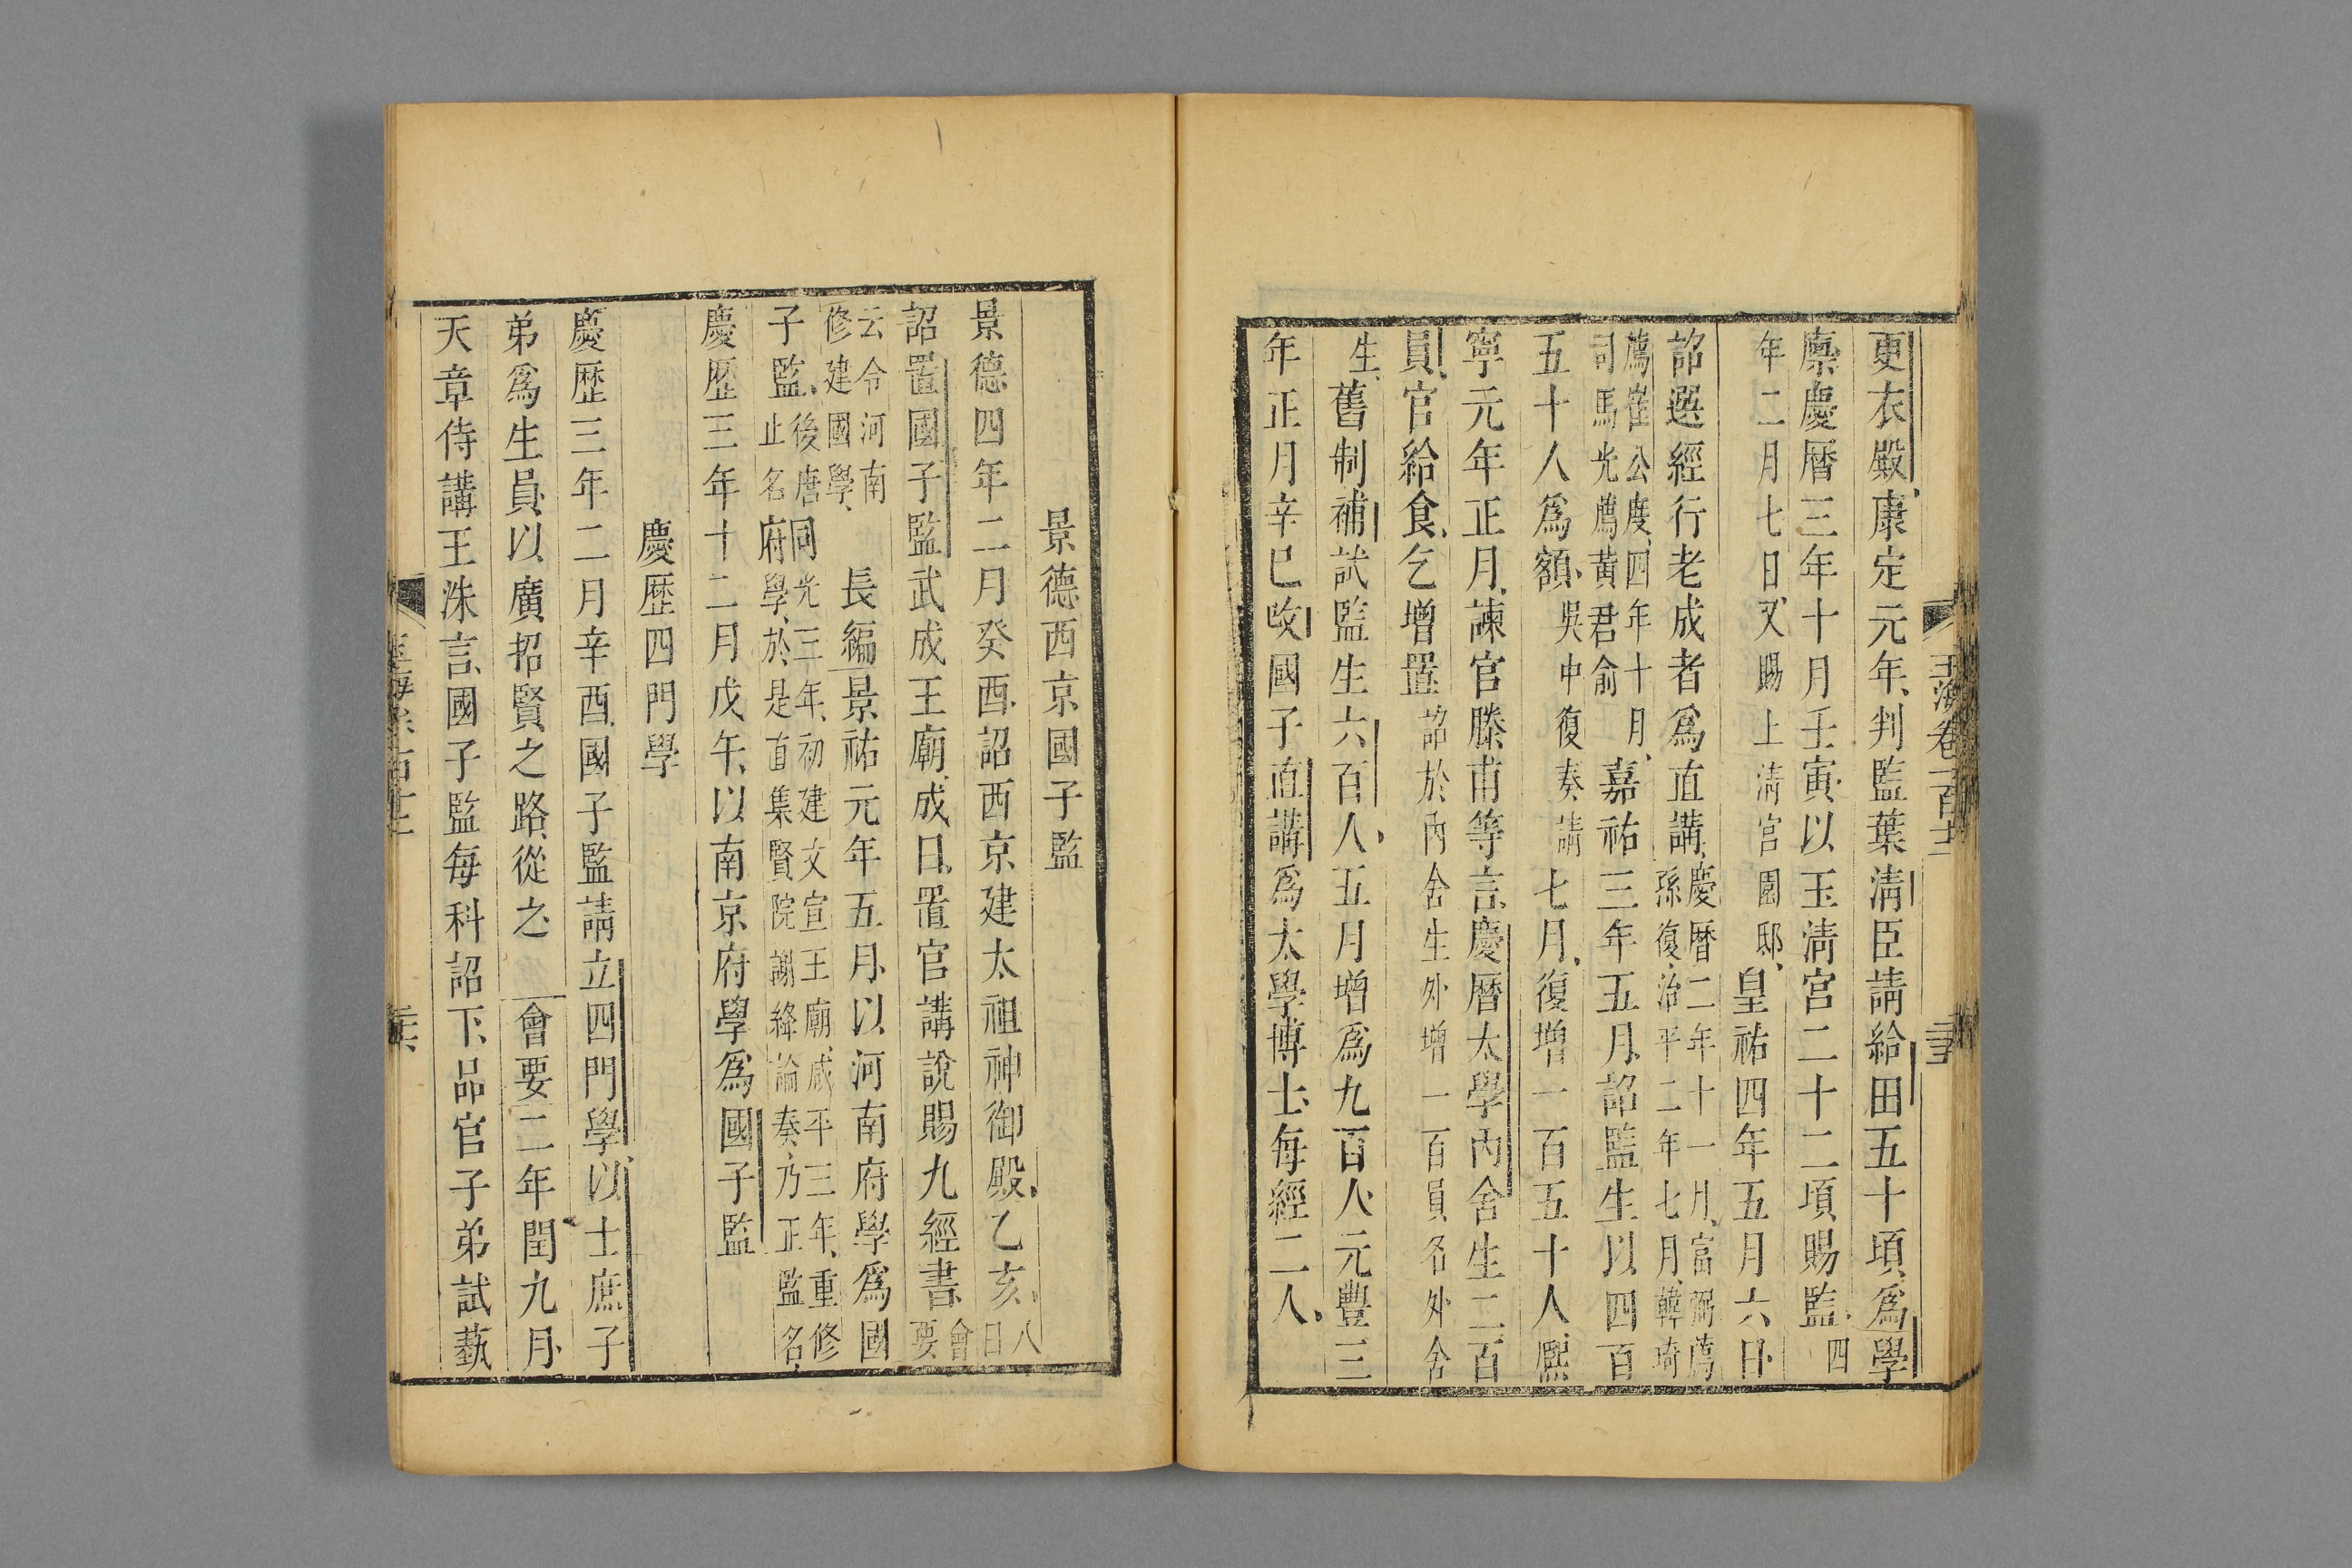 更衣殿康定元年判監葉清臣請給田五十頃爲學
廪慶曆三年十月壬寅以玉清宮二十二頃賜監四
年二月七日又賜上清宮園邸皇祐四年五月六日
詔選經行老成者爲直講慶曆二年十一月富弼薦
孫復治平二年七月韓琦
薦崔公度四年十月
司馬光薦黃君俞嘉祐三年五月詔監生以四百
五十人爲額吳中復奏請七月復增一百五十人熈
寧元年正月諫官滕甫等言慶曆太學內舍生二百
員官給食乞增置詔於內舍生外增一百員名外舍
生舊制補試監生六百人五月增爲九百人元豐三
年正月辛巳改國子直講爲太學博士每經二人
玉海卷一百十二
景德西京國子監
景德四年二月癸酉詔西京建太祖神御殿乙亥八
日
詔置國子監武成王廟成日置官講說賜九經書會
要
云令河南
修建國學長編景祐元年五月以河南府學爲國
子監後唐同光三年初建文宣王廟咸平三年重修
止名府學於是直集賢院謝絳論奏乃正監名
慶歷三年十二月戊午以南京府學爲國子監
慶歷四門學
慶歷三年二月辛酉國子監請立四門學以士庶子
弟爲生員以廣招賢之路從之會要二年閏九月
天章侍講王洙言國子監每科詔下品官子弟試藝